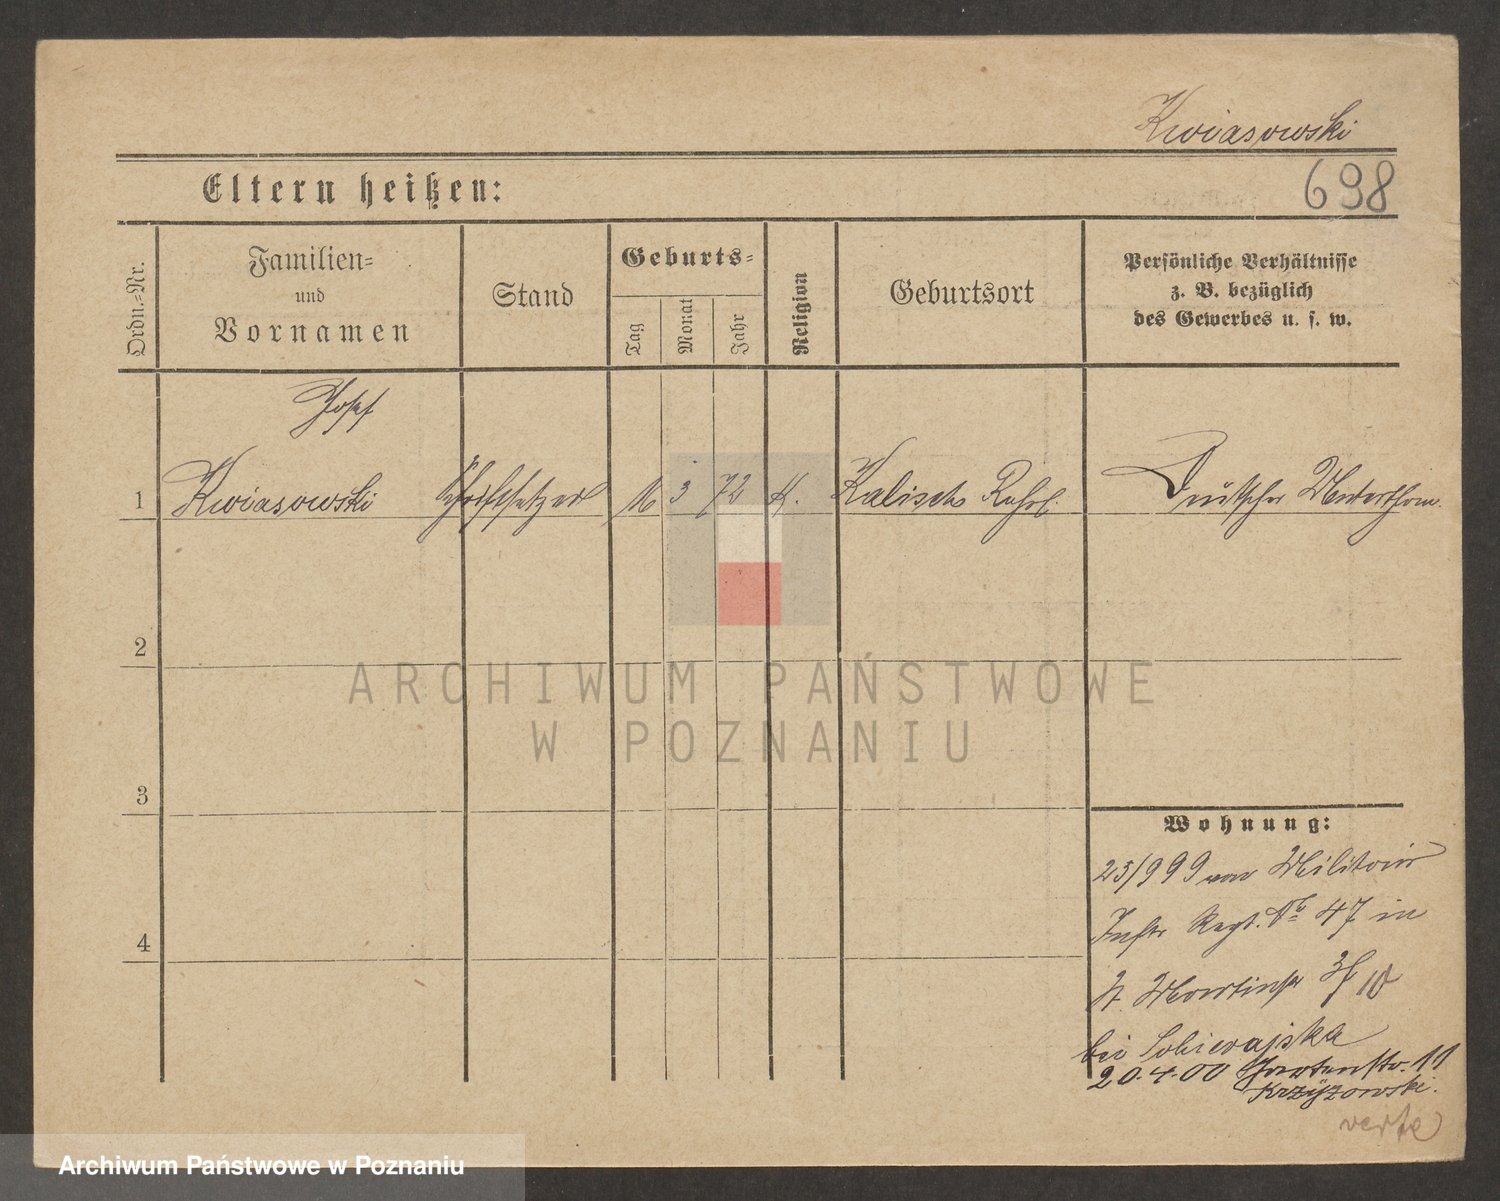 Kwiasowski
698
Eltern heißen:
Ordn.-Nr.
Familien-
und
Vornamen
Stand
Geburts-
Tag
Monat
Jahr
Religion
Geburtsort
Persönliche Verhältnisse
z. B. bezüglich
des Gewerbes u. s. w.
Josef
1 Kwiasowski Schriftsetzer 16 3 72 k. Kalisch Rußl. Deutscher
2
ARCHIWUM PAŃSTWOWE
W POZNANIU
3
Wohnung:
25/999 von Militair
Inftr Regt. No 47 in
St. Martinstr 10
4
bei Sobierajska
20.4.00 Gartenstr. 11
Krzyżowski.
verte
Archiwum Państwowe w Poznaniu